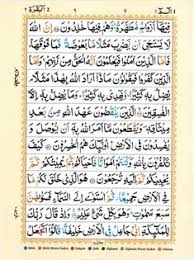 الٓمّٓ ١ ٩ البقرة ٢
فِيْهَآ اَزْوَاجٌ مُّطَهَّرَةٌ وَّهُمْ فِيْهَا خٰلِدُوْنَ اِنَّ اللّٰهَ
لَا يَسْتَحْيٖٓ اَنْ يَّضْرِبَ مَثَلًا مَّا بَعُوْضَةً فَمَا فَوْقَهَا
فَاَمَّا الَّذِيْنَ اٰمَنُوْا فَيَعْلَمُوْنَ اَنَّهُ الْحَقُّ مِنْ رَّبِّهِمْ
وَاَمَّا الَّذِيْنَ كَفَرُوْا فَيَقُوْلُوْنَ مَاذَآ اَرَادَ اللّٰهُ بِهٰذَا مَثَلًا
يُضِلُّ بِهٖ كَثِيْرًا وَّيَهْدِيْ بِهٖ كَثِيْرًا وَمَا يُضِلُّ بِهٖٓ
اِلَّا الْفٰسِقِيْنَ الَّذِيْنَ يَنْقُضُوْنَ عَهْدَ اللّٰهِ مِنْۢ بَعْدِ
مِيْثَاقِهٖ وَيَقْطَعُوْنَ مَآ اَمَرَ اللّٰهُ بِهٖٓ اَنْ يُّوْصَلَ وَ
يُفْسِدُوْنَ فِي الْاَرْضِ اُولٰٓئِكَ هُمُ الْخٰسِرُوْنَ كَيْفَ
تَكْفُرُوْنَ بِاللّٰهِ وَكُنْتُمْ اَمْوَاتًا فَاَحْيَاكُمْ ثُمَّ يُمِيْتُكُمْ
ثُمَّ يُحْيِيْكُمْ ثُمَّ اِلَيْهِ تُرْجَعُوْنَ هُوَ الَّذِيْ خَلَقَ لَكُمْ مَّا
فِي الْاَرْضِ جَمِيْعًا ثُمَّ اسْتَوٰٓى اِلَى السَّمَآءِ فَسَوّٰىهُنَّ
سَبْعَ سَمٰوٰتٍ وَهُوَ بِكُلِّ شَيْءٍ عَلِيْمٌ وَاِذْ قَالَ رَبُّكَ